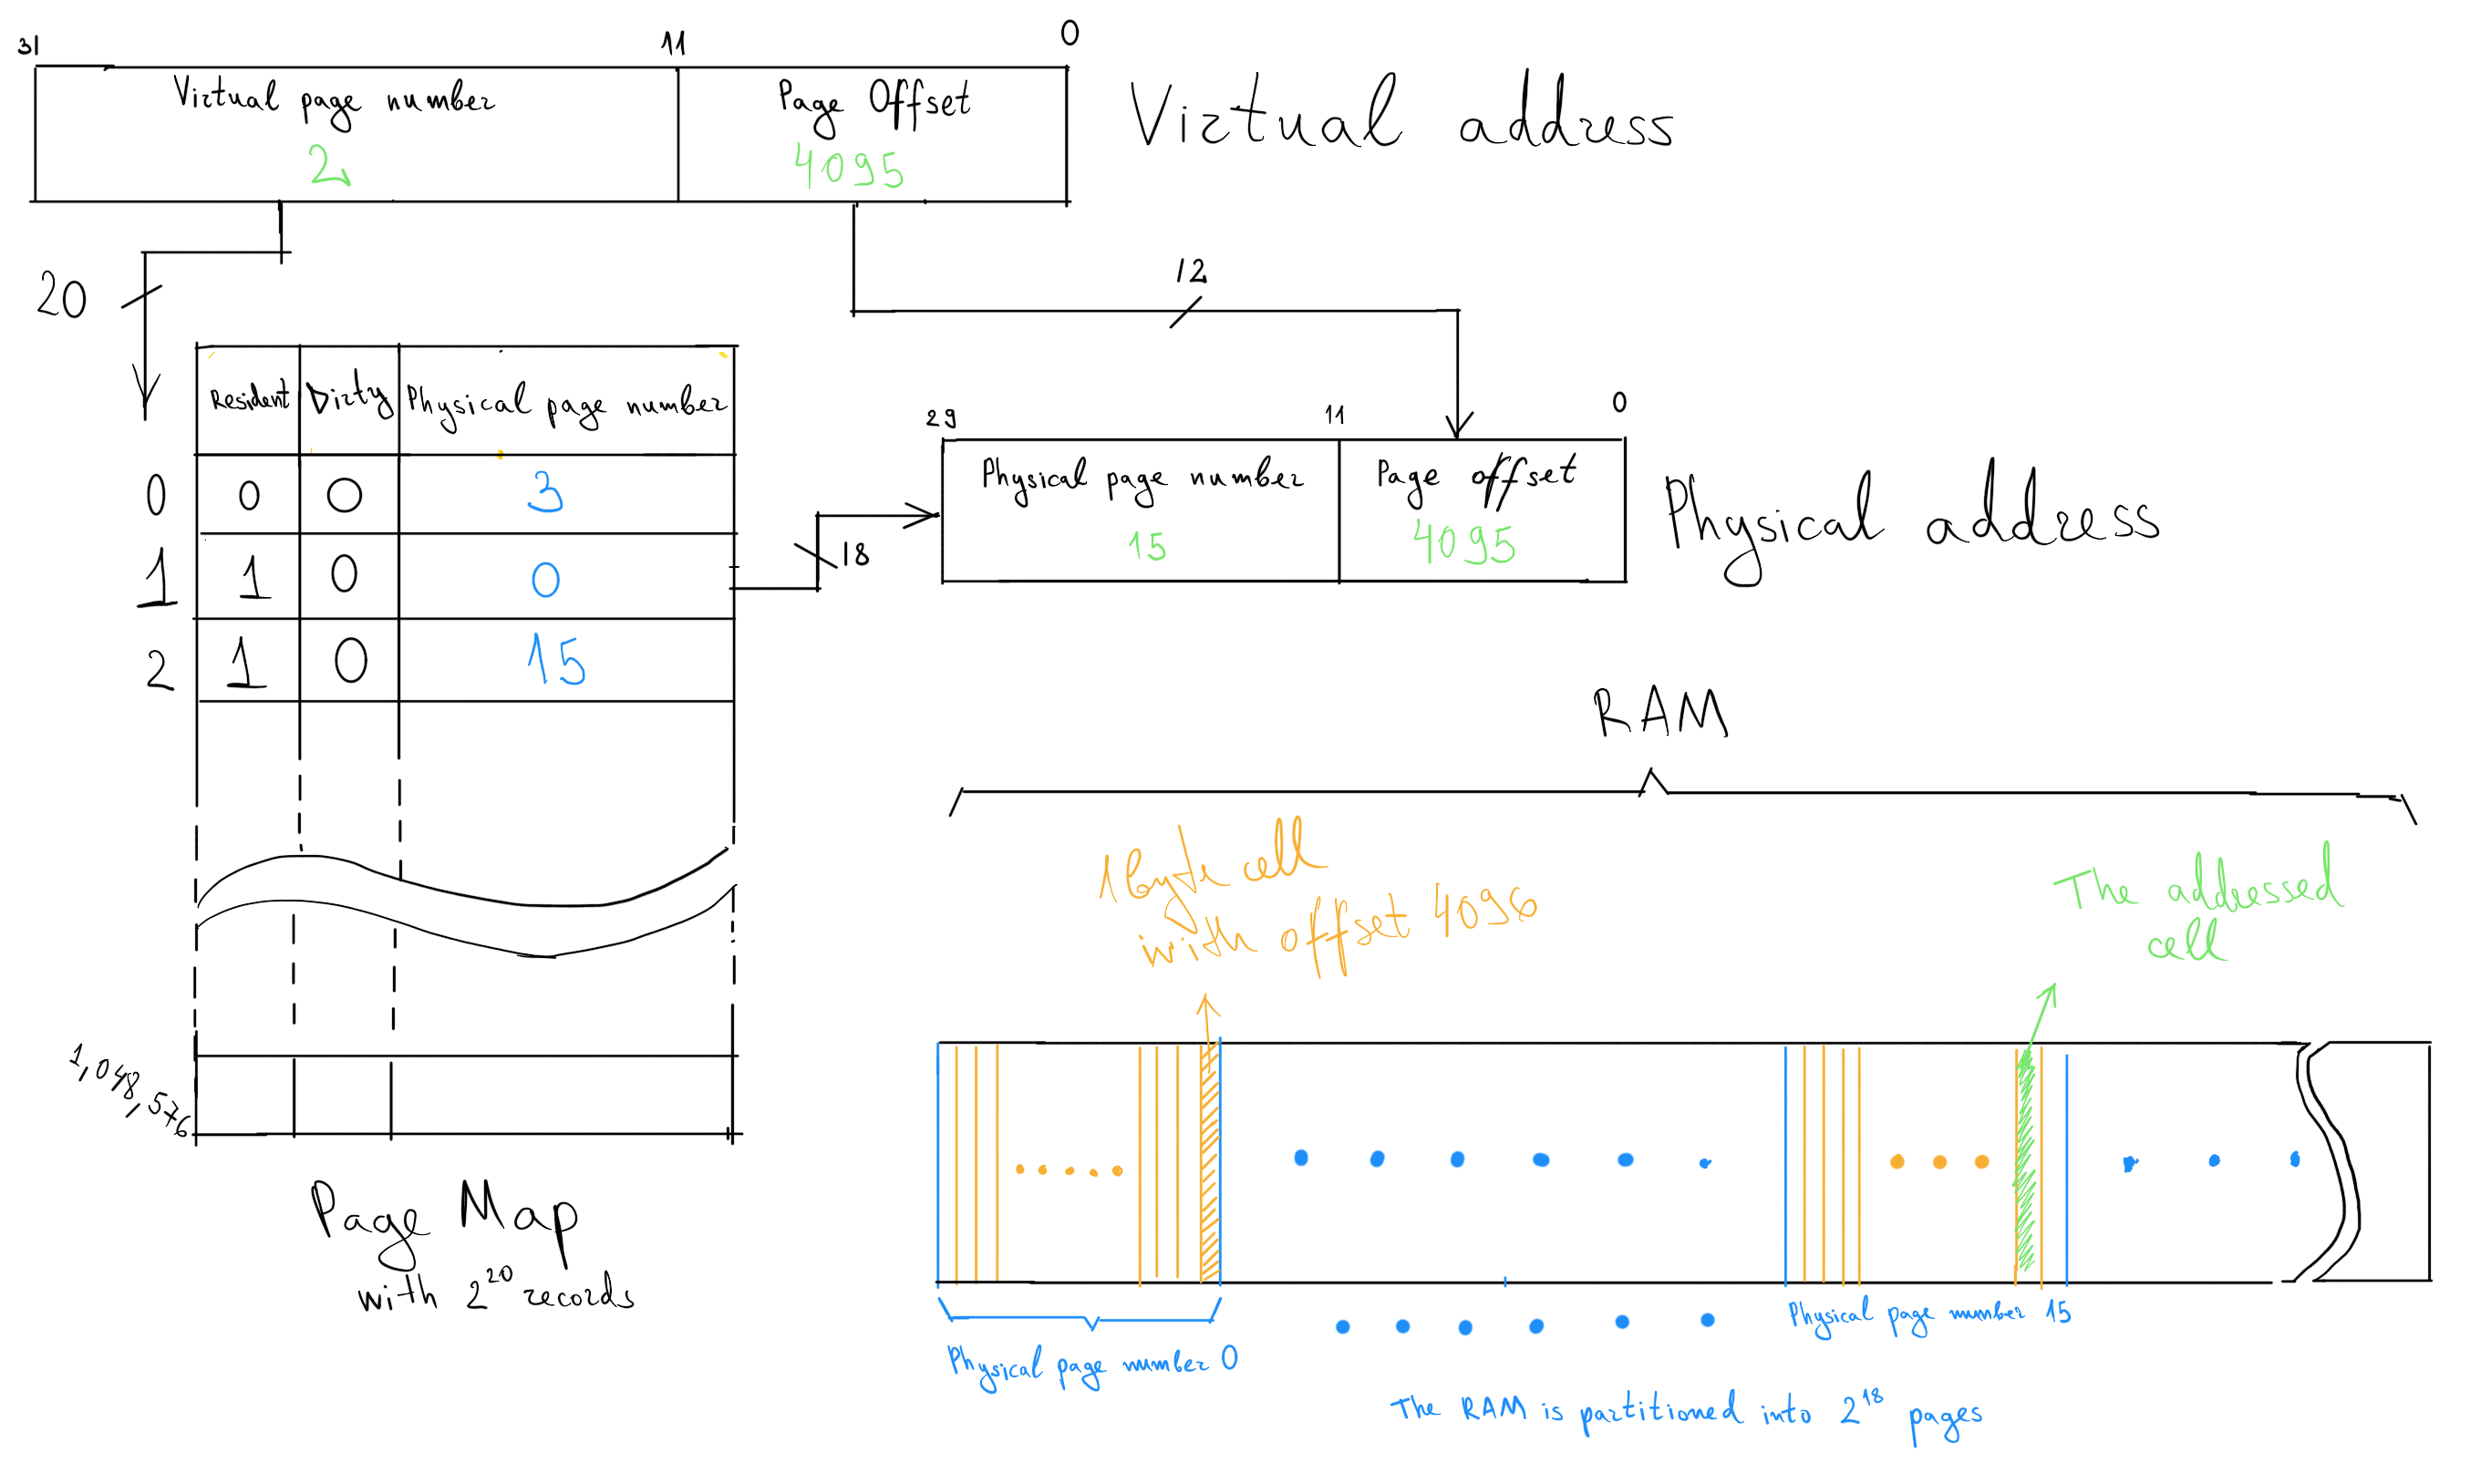 31 11 0
Virtual page number
Page Offset
2
4095
Virtual address
20
12
Resident Dirty Physical page number
0 0 0 3
1 1 0 0
2 1 0 15
18
29 11 0
Physical page number
Page offset
15
4095
Physical address
RAM
1 byte cell
with offset 4096
The addressed
cell
1,048,576
Page Map
with 2^20 records
Physical page number 0
Physical page number 15
The RAM is partitioned into 2^18 pages